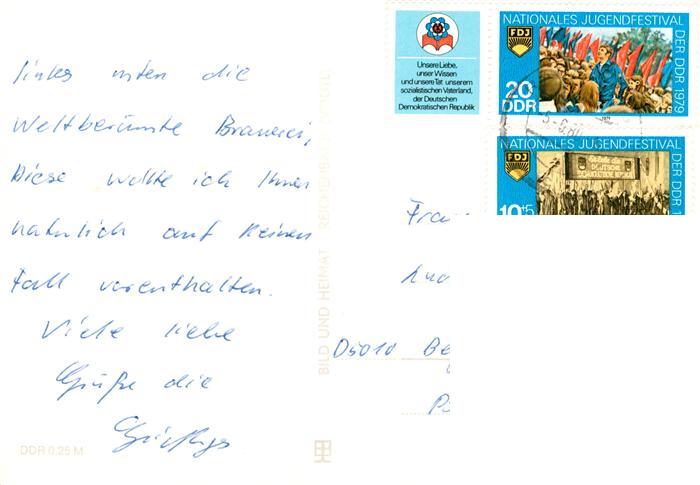 links unten die
Weltberümte Brauerei,
Diese wollte ich Ihnen
natürlich auf keinen
Fall vorenthalten.
Viele liebe
Grüße die
DDR 0,25 M
BILD UND HEIMAT REICHENBACH (VOGTL)
Unsere Liebe,
unser Wissen
und unsere Tat unserem
sozialistischen Vaterland,
der Deutschen
Demokratischen Republik
NATIONALES JUGENDFESTIVAL
DER DDR 1979
FDJ
20
DDR
NATIONALES JUGENDFESTIVAL
DER DDR 1
FDJ
Es lebe die
DEUTSCHE
DEMOKRATISCHE REPUBLIK
10+5
Frau
05010 Be